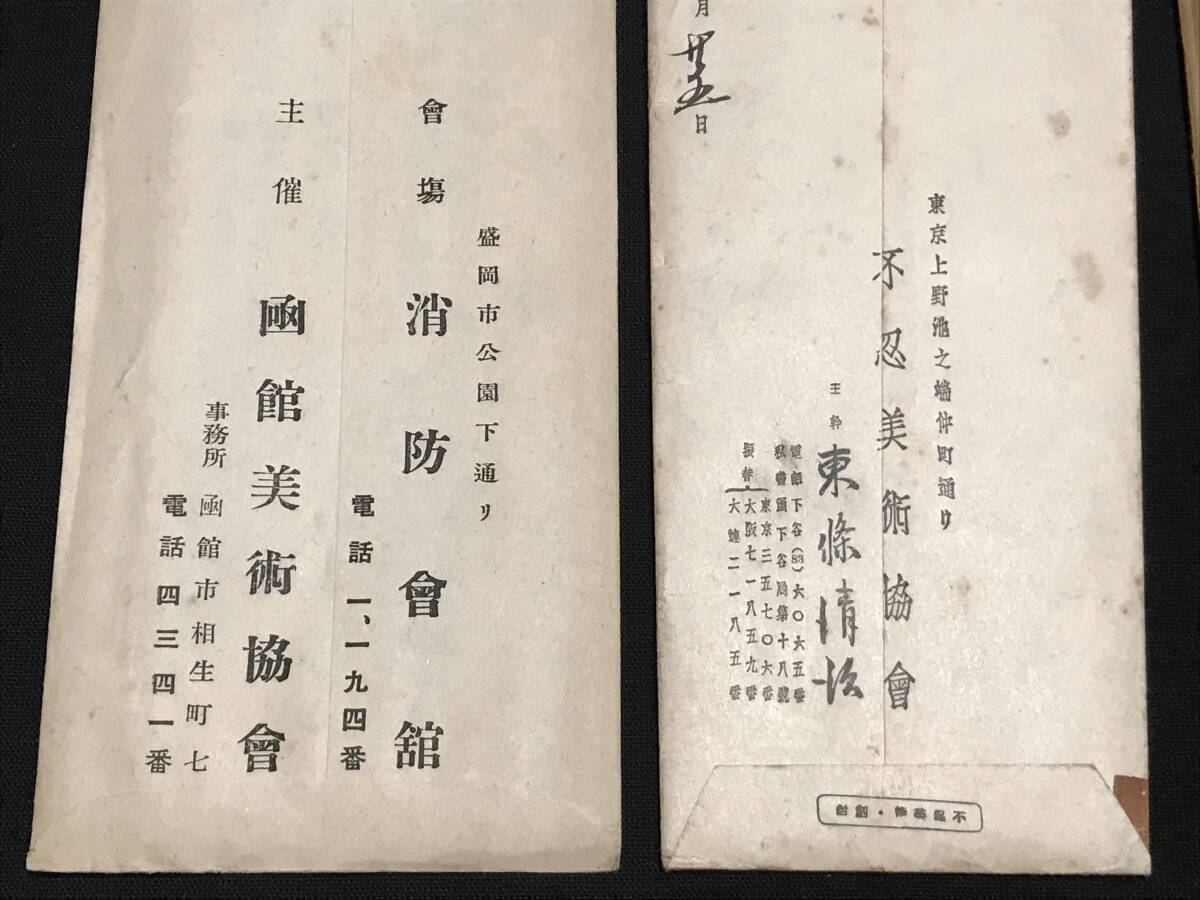 盛岡市公園下通リ
會場 消防會舘
電話一、一九四番
主催 凾館美術協會
事務所 凾館市相生町七
電話四三四一番
月廿五日
東京上野池之端仲町通リ
不忍美術協會
主幹 東條清治
電話下谷(83)六〇六五番
私書凾下谷局第十八號
振替
東京三五七〇六番
大阪七一八五九番
大連二一八五番